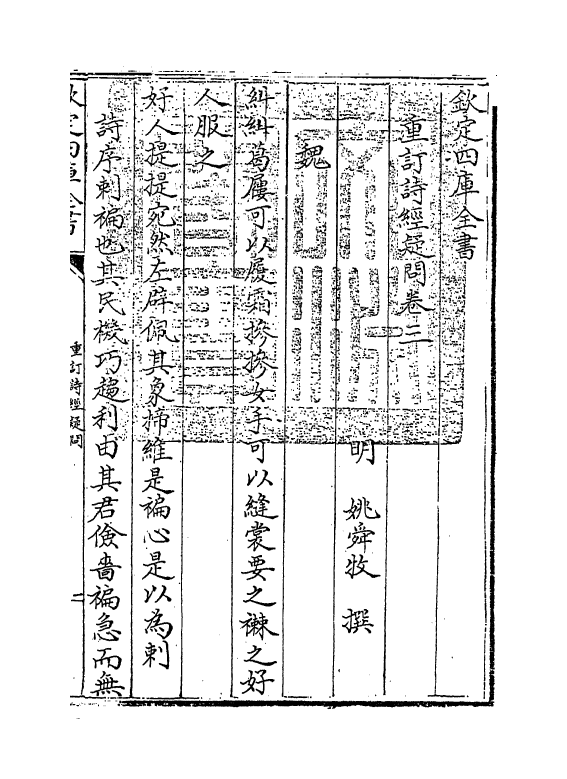 欽定四庫全書
重訂詩經疑問卷三
明 姚舜牧 撰
魏
糾糾葛屨可以履霜摻摻女手可以縫裳要之襋之好
人服之
好人提提宛然左辟佩其象揥維是褊心是以為刺
詩序刺褊也其民機巧趨利由其君儉嗇褊急而無
欽定四庫全書
重訂詩經疑問